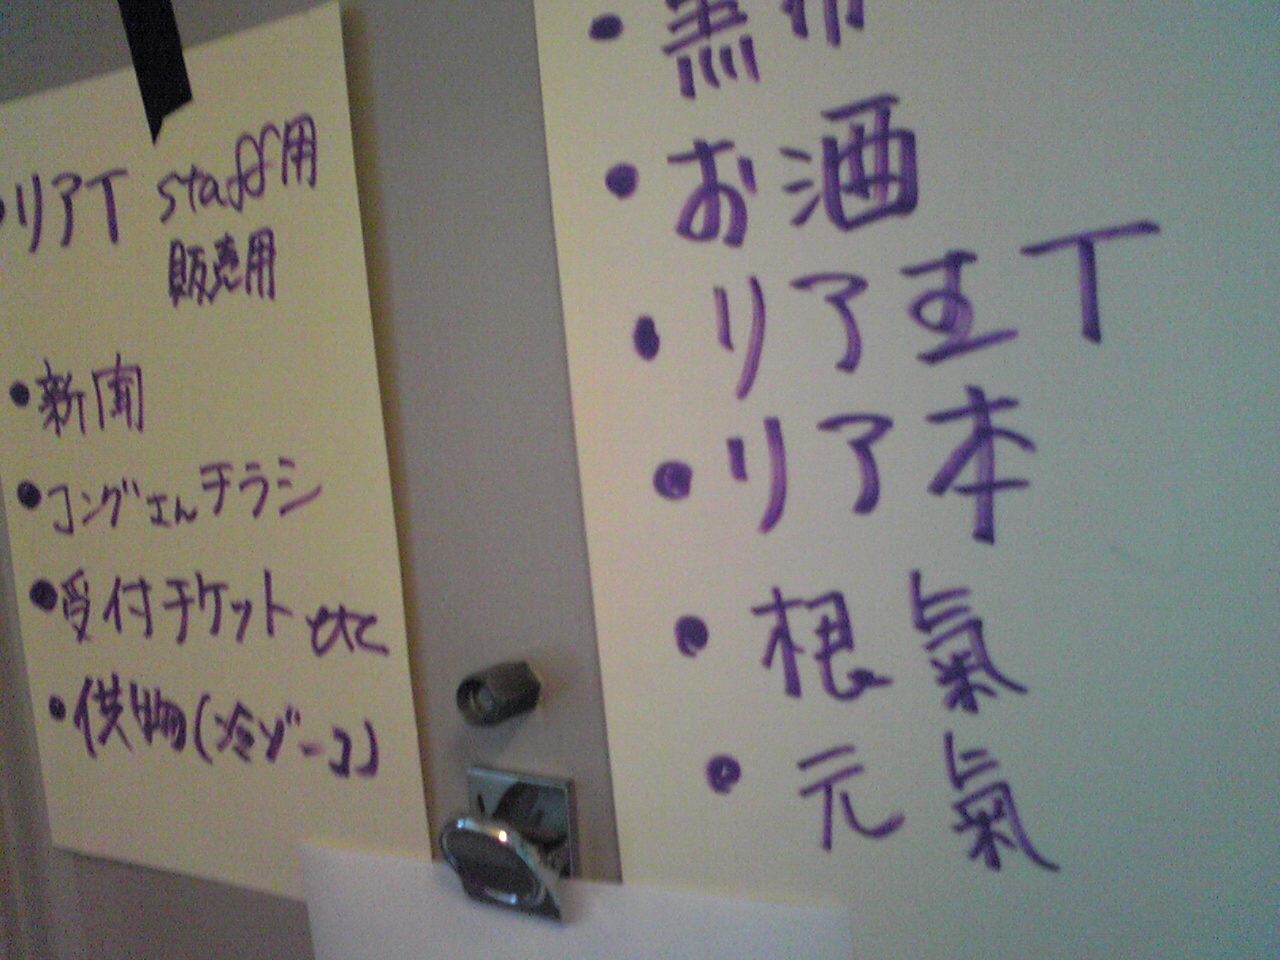 ・リアT staff用
販売用
・新聞
・コングさんチラシ
・受付チケット etc
・供物(冷ゾーコ)
・黒布
・お酒
・リアT
・リア本
・根氣
・元氣